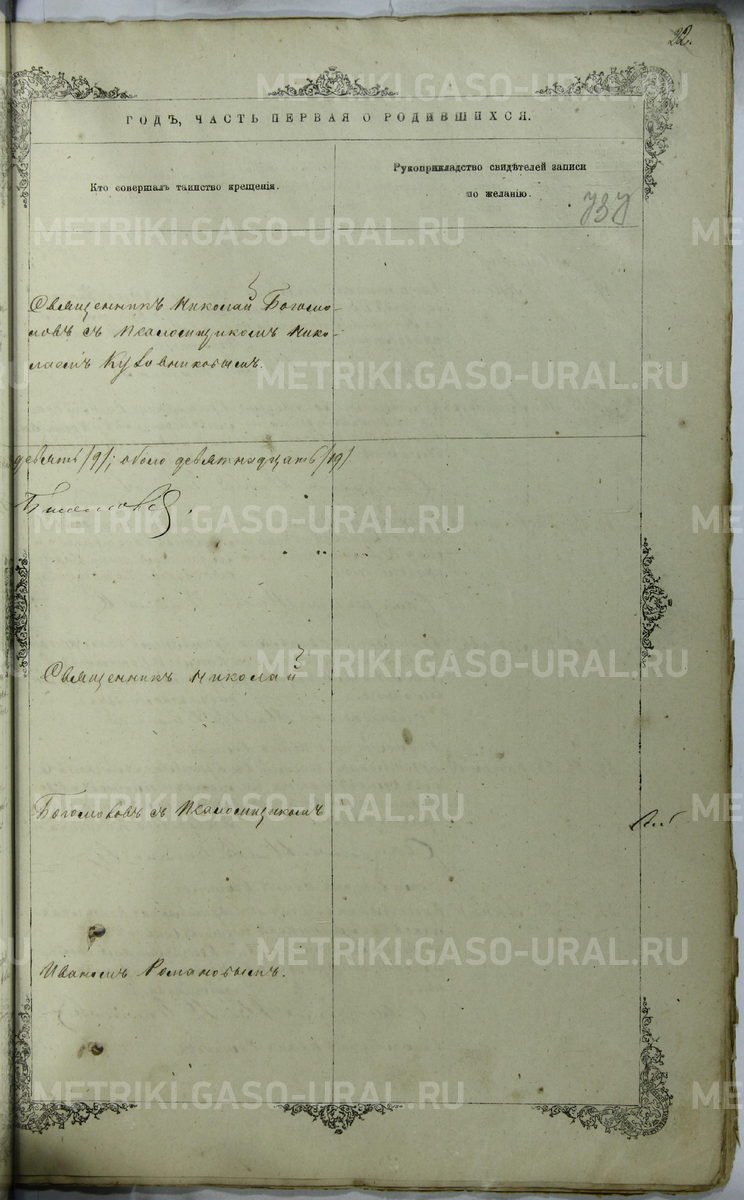 22.
ГОДЪ, ЧАСТЬ ПЕРВАЯ О РОДИВШИХСЯ.
Кто совершалъ таинство крещенія.
Рукоприкладство свидѣтелей записи
по желанію.
737
Священникъ Николай Богомо-
ловъ съ Псаломщикомъ Нико-
лаемъ
девять /9/; около девятнадцать /19/
Священникъ Николай
Богомоловъ съ Псаломщикомъ
Иваномъ Романовымъ.
METRIKI.GASO-URAL.RU